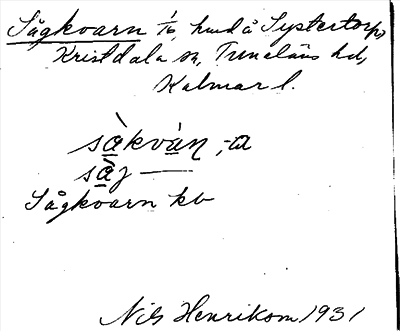 Sågkvarn 1/6, hmd å Systertorp,
Kristdala sn, Tunaläns hd,
Kalmar l.
sàkván, -a
sàg —
Sågkvarn kb
Nils Henrikson 1931